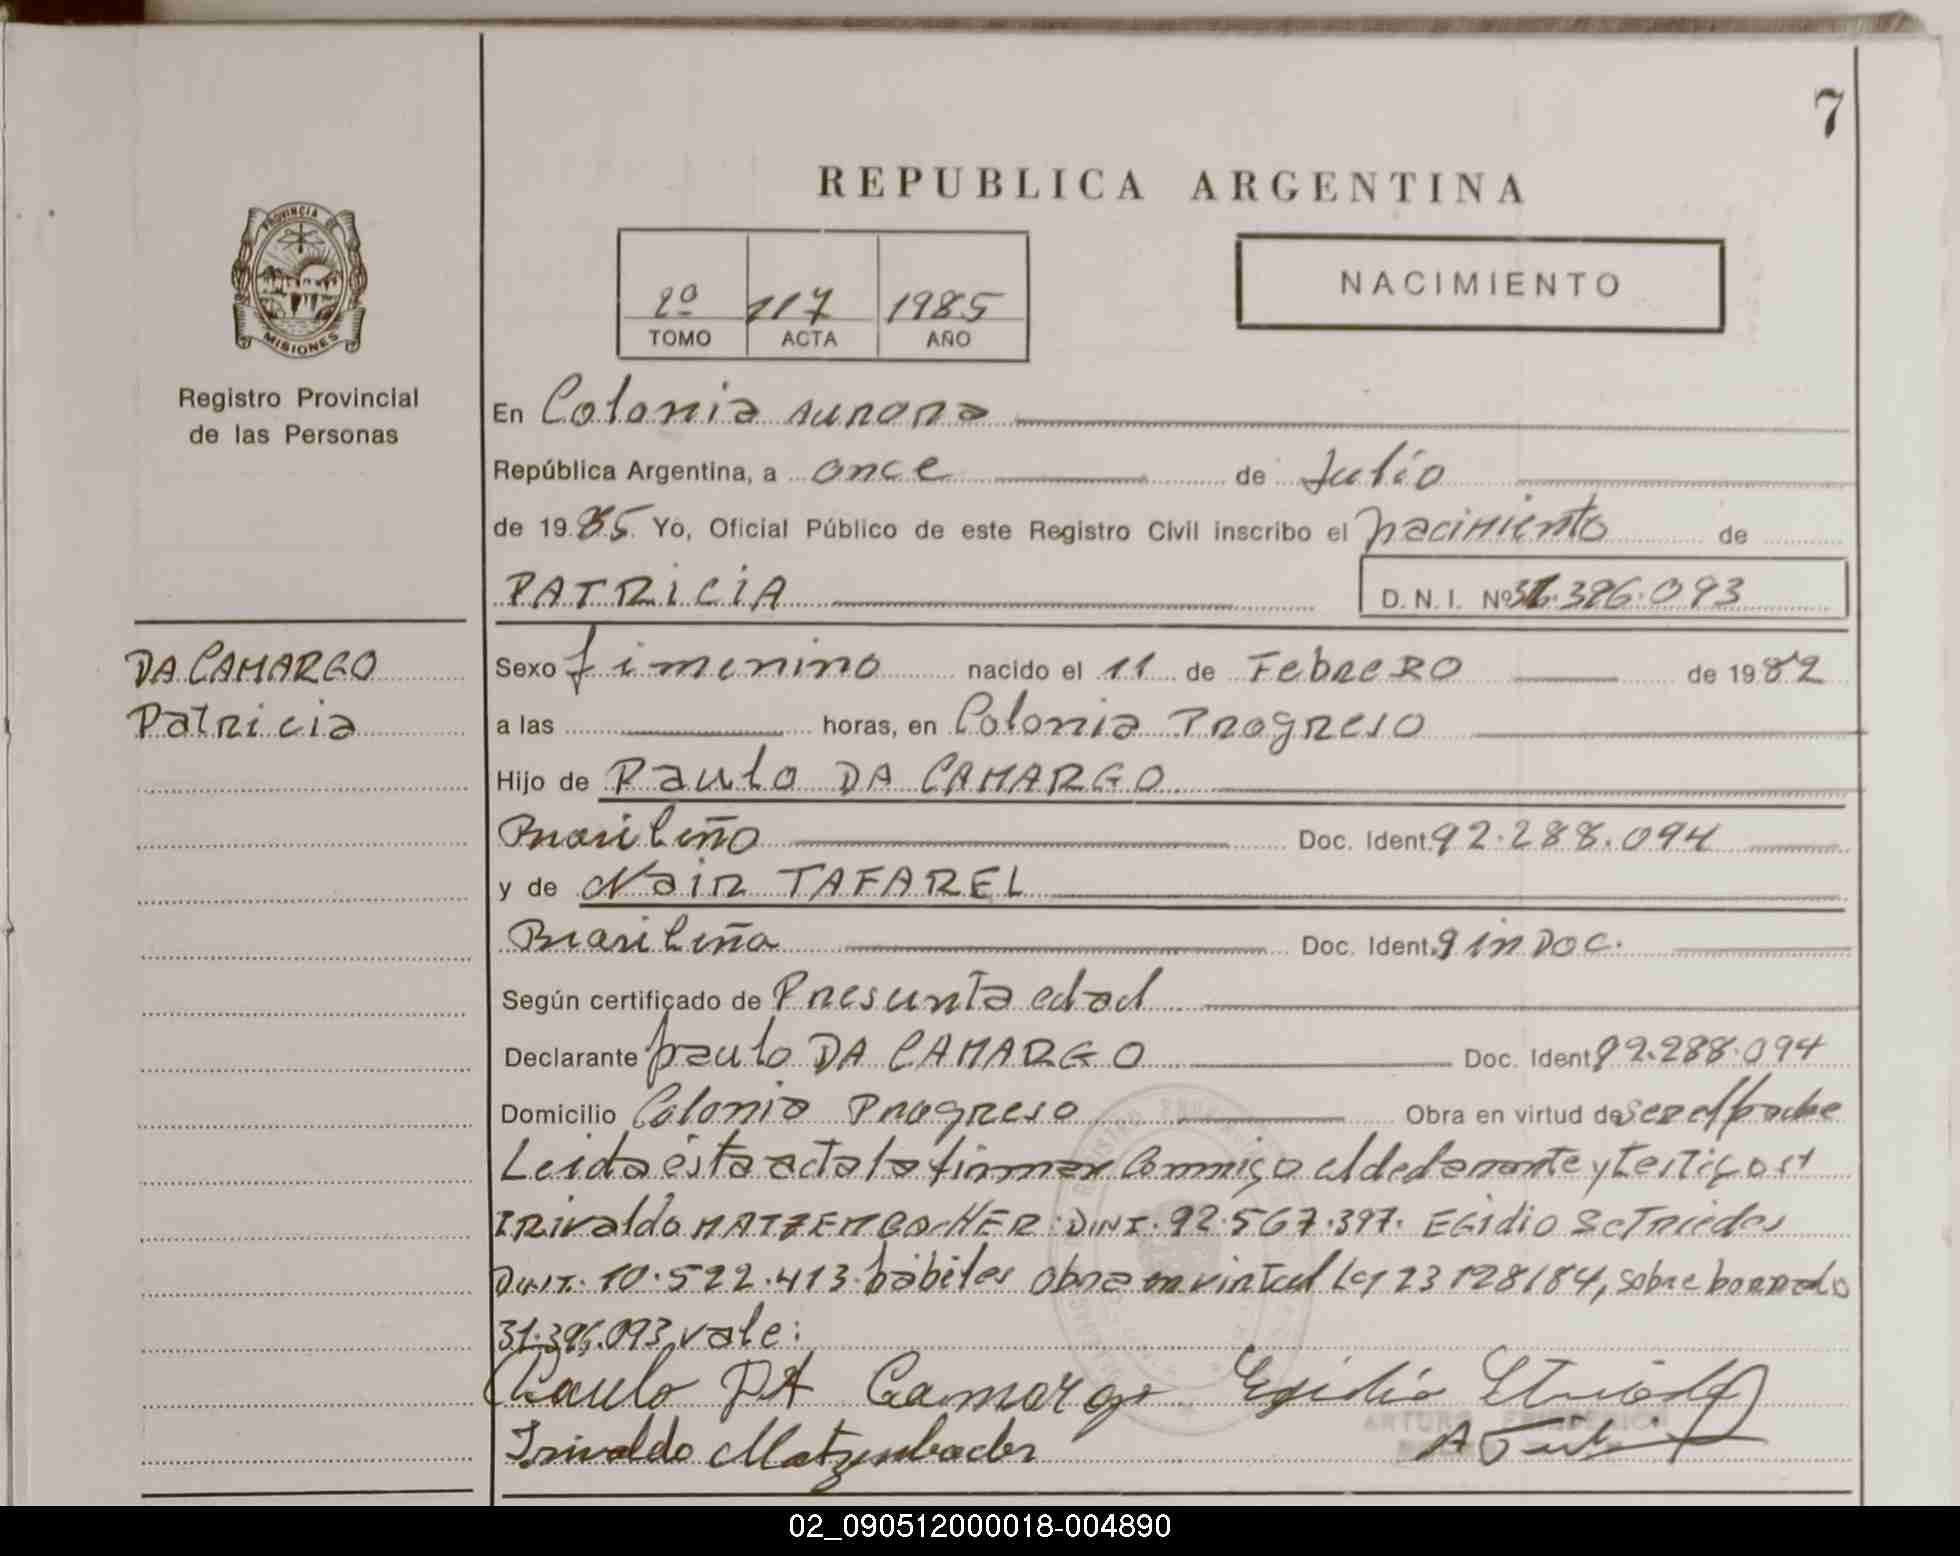 7
REPUBLICA ARGENTINA
PROVINCIA DE
MISIONES
Registro Provincial
de las Personas
2º 117 1985
TOMO ACTA AÑO
NACIMIENTO
En Colonia Aurora
República Argentina, a once de Julio
de 1985. Yo, Oficial Público de este Registro Civil inscribo el nacimiento de
PATRICIA D. N. I. Nº 31.396.093
DA CAMARGO
Patricia
Sexo femenino nacido el 11 de FebreRO de 1982
a las horas, en Colonia Progreso
Hijo de Paulo DA CAMARGO
Brasileño Doc. Ident. 92.288.094
y de Nair TAFAREL
Brasileña Doc. Ident. sin DOC.
Según certificado de Presunta edad
Declarante paulo DA CAMARGO Doc. Ident. 92.288.094
Domicilio Colonia Progreso Obra en virtud de ser el padre
Leida ésta acta la firman conmigo el declarante y testigos:
IRivaldo MATZEMBACHER: D.N.I. 92.567.397. Egidio
D.N.I. 10.522.413. hábiles obra en virtud Ley 23128/84, sobre borrado
31.396.093 vale:
Paulo DA Camargo Egidio
Irivaldo Matzembacher
ARTURO
02_090512000018-004890